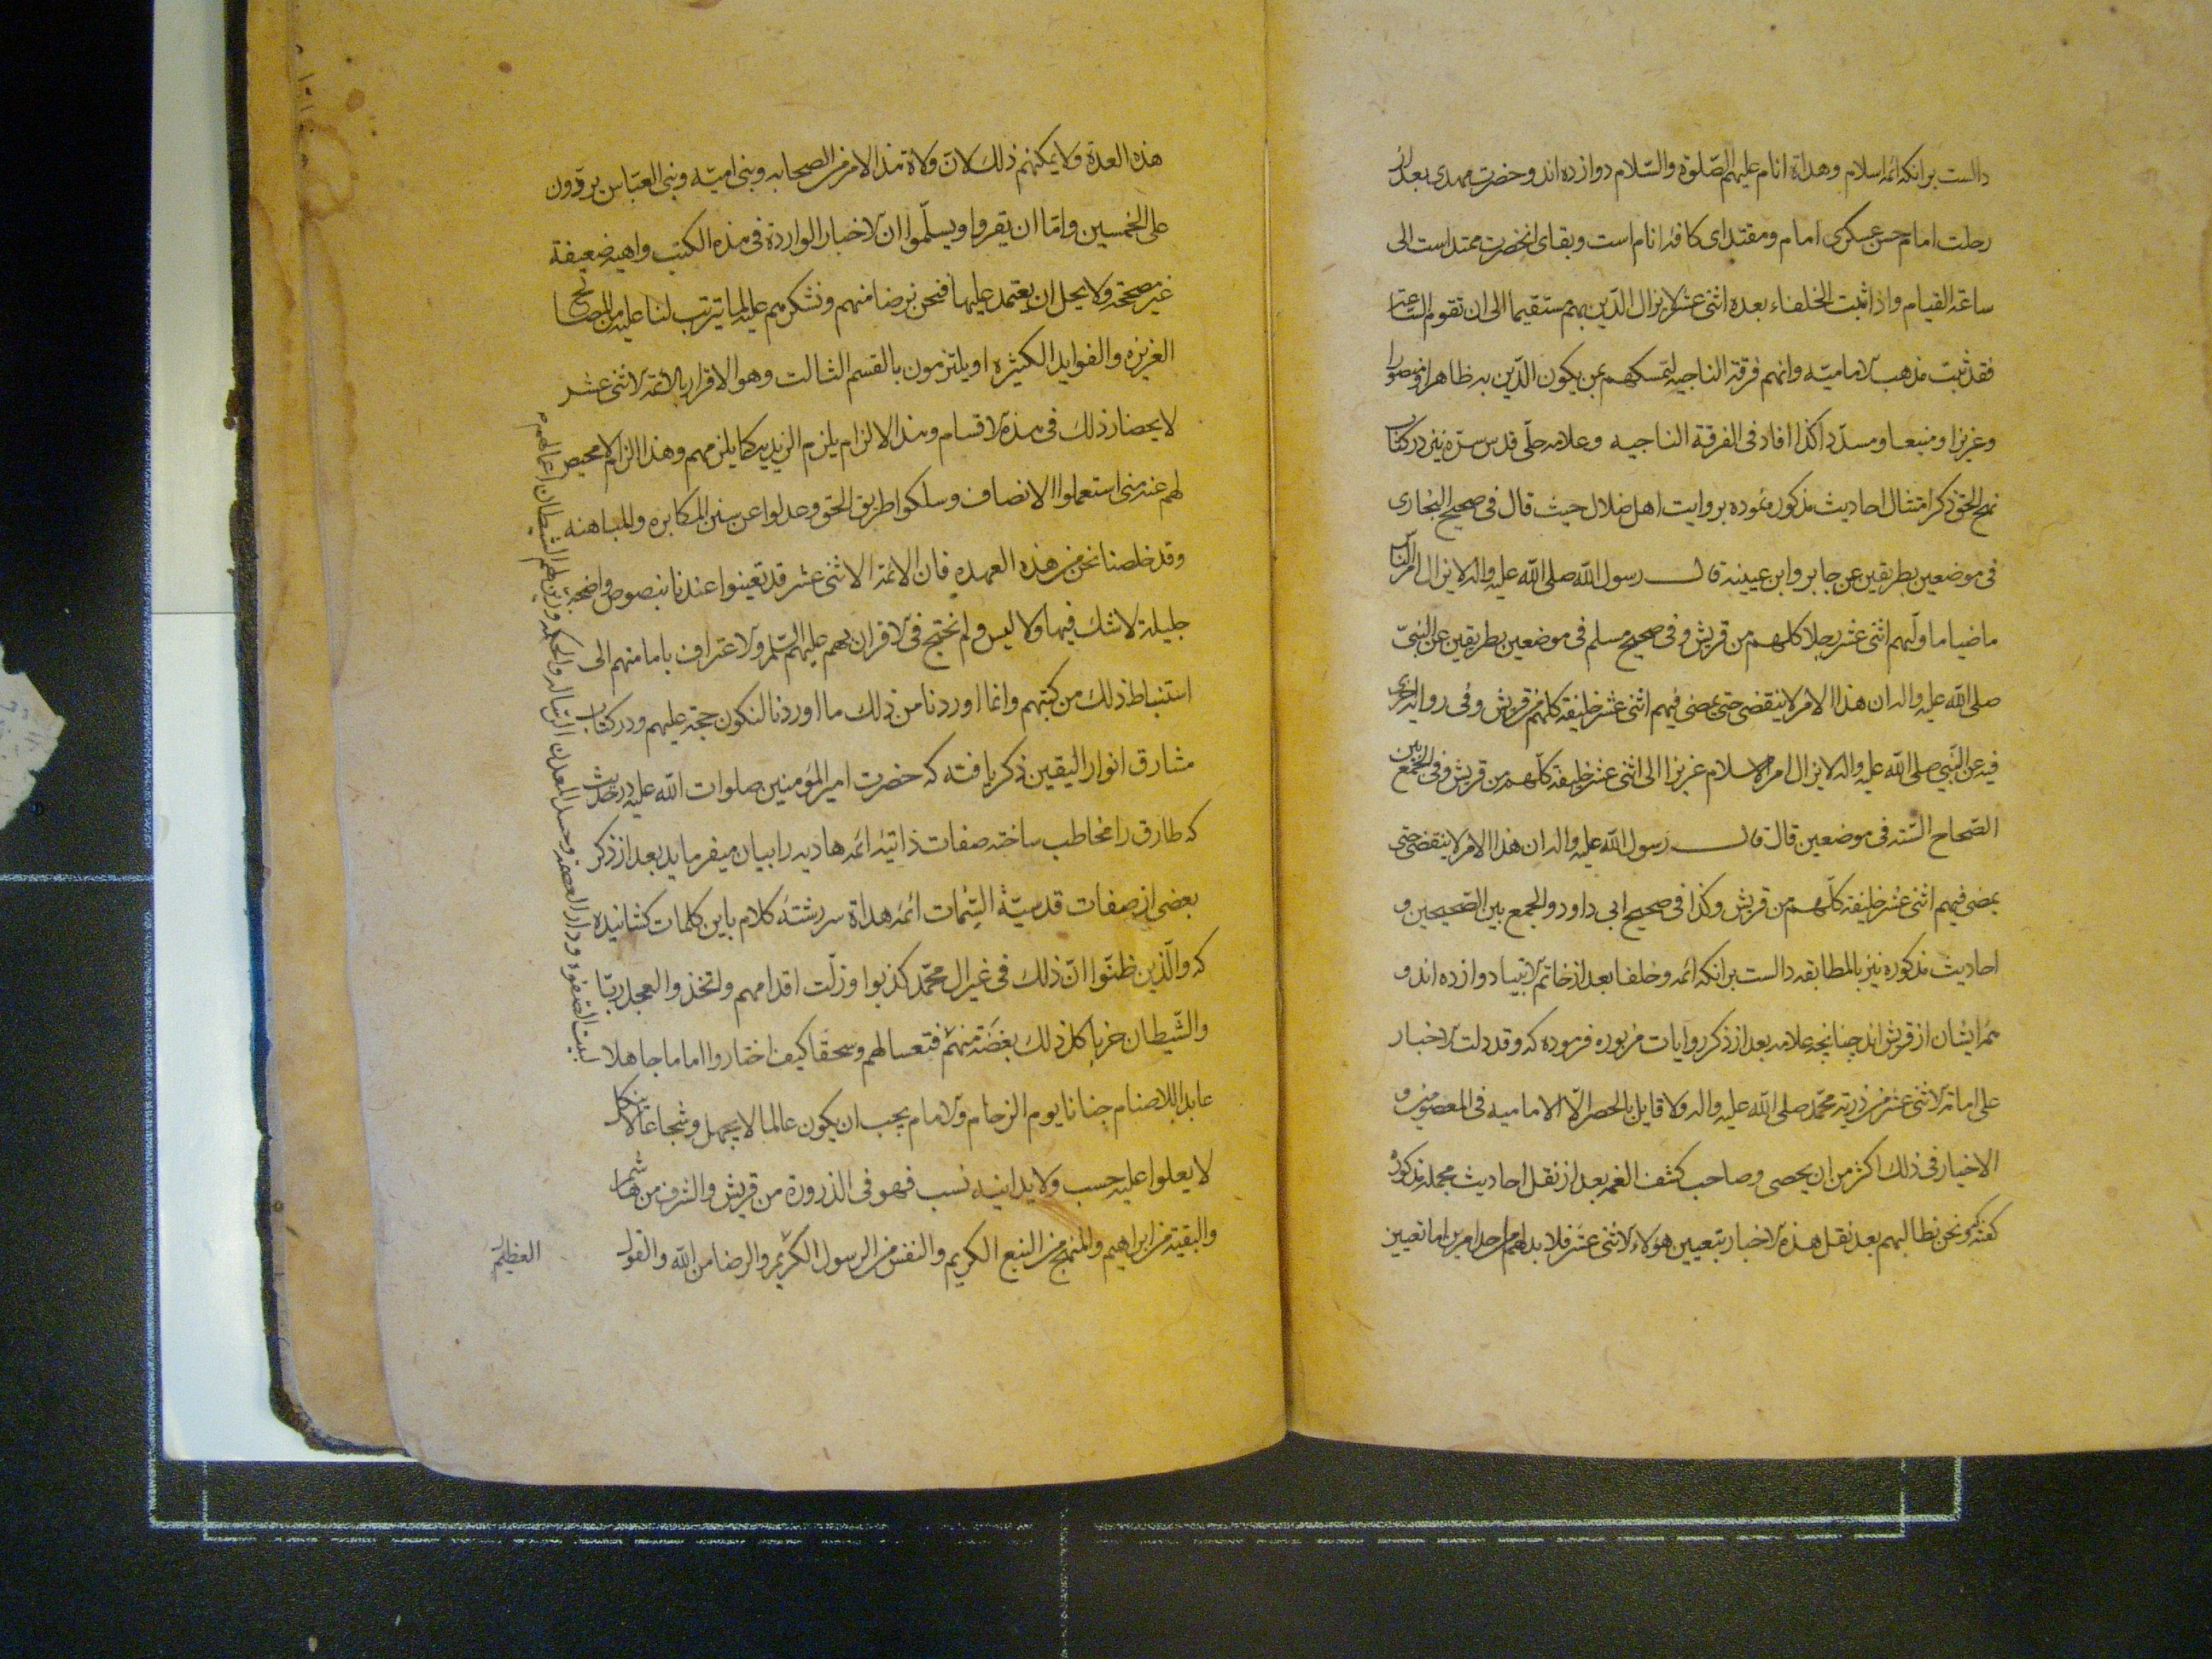 دالست برانکه ائمه اسلام وهداة انام علیهم الصّلوة والسّلام دوازده اند وحضرت مهدی بعد از
رحلت امام حسن عسکری امام ومقتدای کافه انام است وبقای انحضرت ممتد است الی
ساعة القیام واذا ثبت الخلفاء بعده اثنی عشر لا یزال الدّین بهم مستقیما الی ان تقوم الساعة
فقد ثبت مذهب الامامیّه وانهم فرقة الناجیه لتمسکهم بمن یکون الدّین به ظاهرا ومنصورا
وعزیزا ومنیعا ومسدّدا کذا افاد فی الفرقة الناجیه وعلامه حلّی قدس سرّه نیز در کتاب
نهج الحق ذکر امتثال احادیث مذکور نموده بروایت اهل ضلال حیث قال فی صحیح البخاری
فی موضعین بطریقین عن جابر وابن عیینه قال رسول الله صلی الله علیه واله لا یزال امر الناس
ماضیا ما ولّیهم اثنی عشر رجلا کلهم من قریش وفی صحیح مسلم فی موضعین بطریقین عن النبیّ
صلی الله علیه واله ان هذا الامر لا ینقضی حتی یمضی فیهم اثنی عشر خلیفة کلهم من قریش وفی روایة اخری
فیه عن النّبی صلی الله علیه واله لا یزال امر الاسلام عزیزا الی اثنی عشر خلیفة کلّهم من قریش وفی الجمع بین
الصّحاح السّته فی موضعین قال قال رسول الله علیه واله ان هذا الامر لا ینقضی حتی
یمضی فیهم اثنی عشر خلیفة کلّهم من قریش وکذا فی صحیح ابی داود والجمع بین الصّحیحین و
احادیث مذکوره نیز بالمطابقه دالست برانکه ائمه وخلفا بعد از خاتم الانبیا دوازده اند و
همه ایشان از قریش اند چنانچه علامه بعد از ذکر روایات مزبوره فرموده که وقد دلت الاخبار
علی امامة الاثنی عشر من ذریة محمّد صلی الله علیه واله ولا قایل بالحصر الّا الامامیه فی المعصومین و
الاخبار فی ذلک اکثر من ان یحصی وصاحب کشف الغمه بعد از نقل احادیث مجمله مذکوره
کفته که ونحن نطالبهم بعد نقل هذه الاخبار بتعیین هؤلاء الاثنی عشر فلا بدلهم من احد امرین اما تعیین
هذه العدة ولا یمکنهم ذلک لانّ ولاة هذا الامر من الصحابه وبنی امیّه وبنی العبّاس یزیدون
علی الخمسین وامّا ان یقروا ویسلّموا ان الاخبار الواردة فی هذه الکتب واهیه ضعیفة
غیر مصححّة ولا یحل ان یعتمد علیها فنحن نرضا منهم ونشکرهم علیه لما یترتب لنا علیه من المصالح
الغریزه والفواید الکثیره او یلتزمون بالقسم الثالث وهو الاقرار بالائمه الاثنی عشر
لا یحصار ذلک فی هذه الاقسام وهذا الالزام یلزم الزیدیه کما یلزمهم وهذا الزام لا محیص
لهم عنه متی استعملوا الانصاف وسلکوا طریق الحق وعدلوا عن سنن المکابره والمباهته
وقد خلصنا نحن من هذه العهده فان الائمه الاثنی عشر قد تعینوا عندنا بنصوص واضحة
جلیلة لا شک فیها ولا لبس ولم نحتج فی الاقران بهم علیهم السّلم والاعتراف بامامتهم الی
استنباط ذلک من کتبهم وانما اوردنا من ذلک ما اوردنا لنکون حجة علیهم ودر کتاب
مشارق انوار الیقین ذکر یافته که حضرت امیر المؤمنین صلوات الله علیه در حدیث
که طارق را مخاطب ساخته صفات ذاتیهٔ ائمه هادیه را بیان میفرماید بعد از ذکر
بعضی از صفات قدسیّة السّمات ائمه هداة سر رشتهٔ کلام باین کلمات کشانیده
که والّذین ظنّوا انّ ذلک فی غیر ال محمّد کذبوا وزلّت اقدامهم واتخذوا العجل ربّا
والشّیطان حزبا کل ذلک بغضة منهم فتعسا لهم وسحقا کیف اختاروا اماما جاهلا
عابدا للاصنام جبانا یوم الزحام والامام یجب ان یکون عالما لا یجهل وشجاعا لا ینکل
لا یعلوا علیه حسب ولا یدانیه نسب فهو فی الذروة من قریش والشرف من هاشم
والبقیة من ابراهیم والمنهج من النبع الکریم والنفس من الرسول الکریم والرضا من الله والقول
العظیم
بیت الصفوه ودار العصمه وحسد المعدن الرساله والحکمه وزین لهم الشیطان اعمالهم